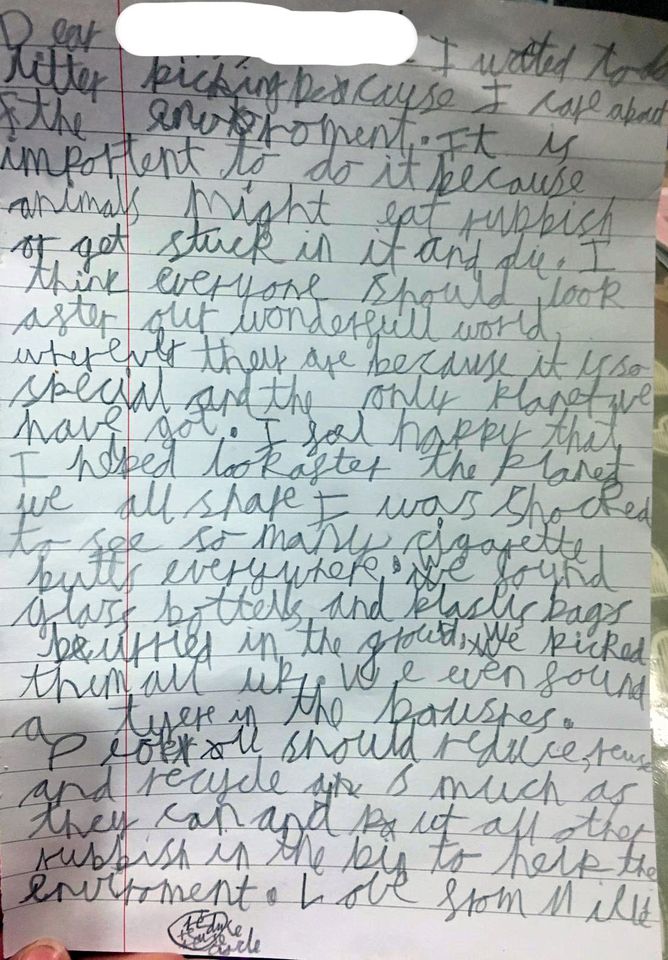 Dear
I wated to do
litter picking because I care about
the enviroment. It is
importent to do it because
animals might eat rubbish
or get stuck in it and die. I
think everyone should look
after our wonderfull world,
wherever they are because it is so
special and the only planet we
have got. I feel happy that
I helped look after the planet
we all share I was shocked
to see so many cigarette
butts everywhere. We found
glass bottels and plastic bags
burried in the ground, We picked
them all up. We even found
a tyere in the
People should reduce, reuse
and recycle as much as
they can and put all other
rubbish in the bin to help the
enviroment. Love from
reduce
reuse